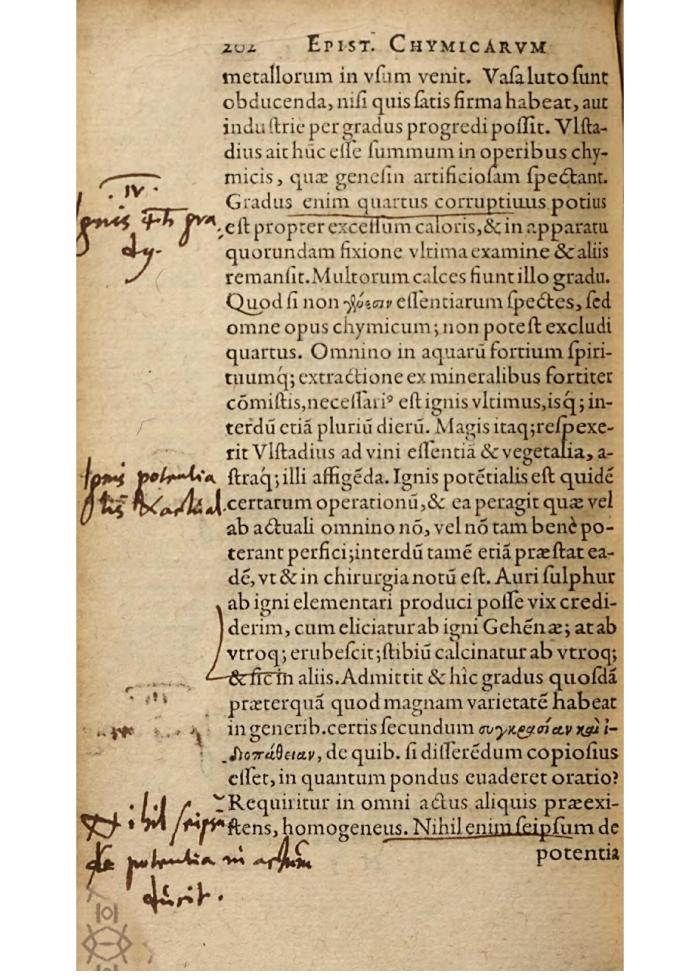 202 EPIST. CHYMICARVM
metallorum in vſum venit. Vaſa luto ſunt
obducenda, niſi quis ſatis firma habeat, aut
induſtrie per gradus progredi poſſit. Vlſta-
dius ait hūc eſſe ſummum in operibus chy-
micis, quæ geneſin artificioſam ſpectant.
Gradus enim quartus corruptiuus potius
eſt propter exceſſum caloris, & in apparatu
quorundam fixione vltima examine & aliis
remanſit. Multorum calces fiunt illo gradu.
Quod ſi non eſſentiarum ſpectes, ſed
omne opus chymicum; non poteſt excludi
quartus. Omnino in aquarū fortium ſpiri-
tuumq́; extractione ex mineralibus fortiter
cōmiſtis, neceſſariꝰ eſt ignis vltimus, isq́; in-
terdū etiā pluriū dierū. Magis itaq; reſpexe-
rit Vlſtadius ad vini eſſentiā & vegetalia, a-
ſtraq́; illi affigēda. Ignis potētialis eſt quidē
certarum operationū, & ea peragit quæ vel
ab actuali omnino nō, vel nō tam benè po-
terant perfici; interdū tamē etiā præſtat ea-
dē, vt & in chirurgia notū eſt. Auri ſulphur
ab igni elementari produci poſſe vix credi-
derim, cum eliciatur ab igni Gehēnæ; at ab
vtroq; erubeſcit; ſtibiū calcinatur ab vtroq;
& ſic in aliis. Admittit & hìc gradus quoſdā
præterquā quod magnam varietatē habeat
in generib. certis ſecundum συγκρασίαν καὶ ἰ-
διοπάθειαν, de quib. ſi diſſerēdum copioſius
eſſet, in quantum pondus euaderet oratio?
Requiritur in omni actus aliquis præexi-
ſtens, homogeneus. Nihil enim ſeipſum de
potentia
IV.
Ignis gra
dy.
Ignis potentia
lis & actual.
Nihil ſeipſū
de potentia in actum
ducit.